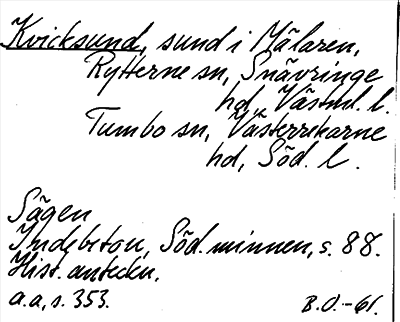 Kvicksund, sund i Mälaren,
Rytterne sn, Snävringe
hd, Västml. l.
Tumbo sn, Västerrekarne
hd, Söd. l.
Sägen
Indebetou, Söd. minnen, s. 88.
Hist. anteckn.
a.a, s. 353.
B.O.-61.